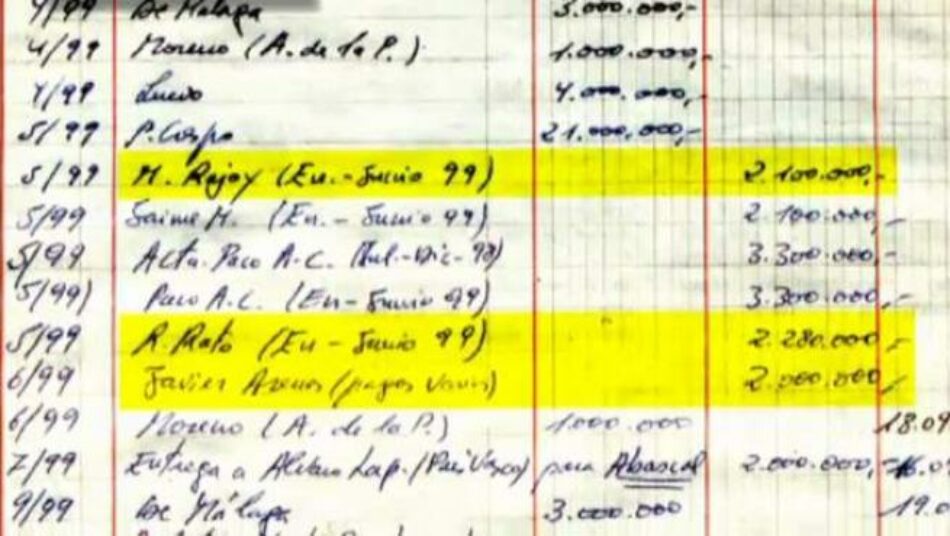 4/99 De Málaga 3.000.000,-
4/99 Moreno (A. de la P.) 1.000.000,-
4/99 4.000.000,-
5/99 P. Cospo 21.000,000,-
5/99 M. Rajoy (En.- Junio 99) 2.100.000,-
5/99 Jaime M. (En.- Junio 99) 2.100.000,-
5/99 Acta. Paco A.C. (Jul.-Dic-98) 3.300.000,-
5/99) Paco A.C. (En- Junio 99) 3.300.000,-
5/99 R. Rato (En - Junio 99) 2.280.000,-
6/99 Javier Arenas (pagos varios) 2.000.000,-
6/99 Moreno (A. de la P.) 1.000.000 18.09
7/99 Entrega a Alvaro Lap. (País Vasco) para Abascal 2.000.000,-
9/99 De Málaga 3.000.000 19.0